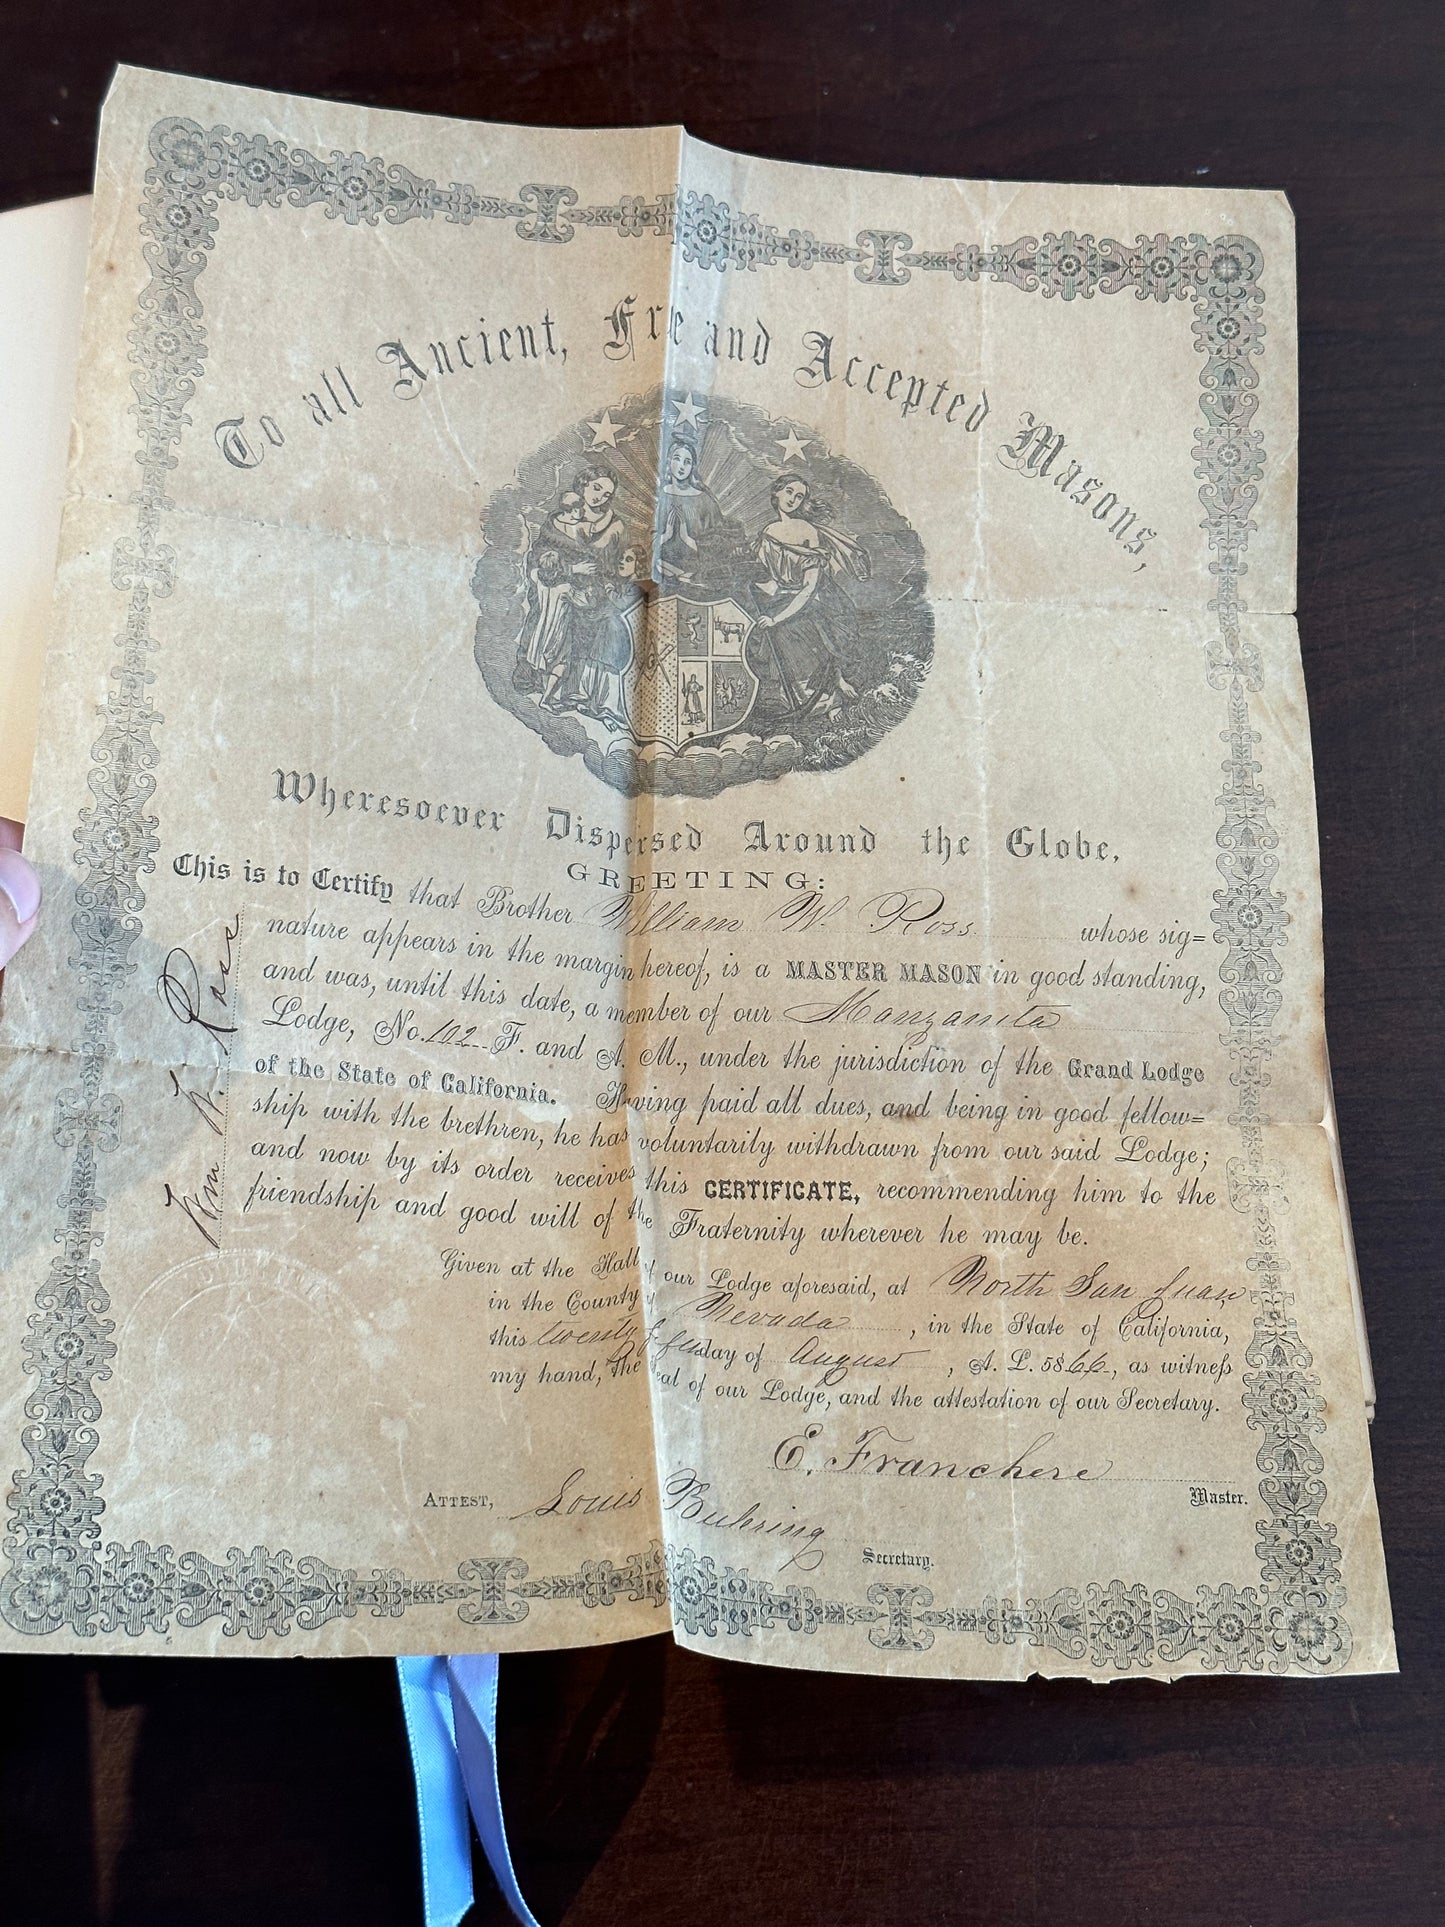 To all Ancient, Free and Accepted Masons,
Wheresoever Dispersed Around the Globe,
GREETING:
This is to Certify that Brother William W. Ross whose sig=
nature appears in the margin hereof, is a MASTER MASON in good standing,
and was, until this date, a member of our Manzanita
Lodge, No. 102 F. and A. M., under the jurisdiction of the Grand Lodge
of the State of California. Having paid all dues, and being in good fellow=
ship with the brethren, he has voluntarily withdrawn from our said Lodge;
and now by its order receives this CERTIFICATE, recommending him to the
friendship and good will of the Fraternity wherever he may be.
Wm W. Ross
Given at the Hall of our Lodge aforesaid, at North San Juan,
in the County of Nevada, in the State of California,
this twenty day of August, A. L. 5866, as witness
my hand, the Seal of our Lodge, and the attestation of our Secretary.
E. Franchere
Master.
ATTEST, Louis Buhring
Secretary.